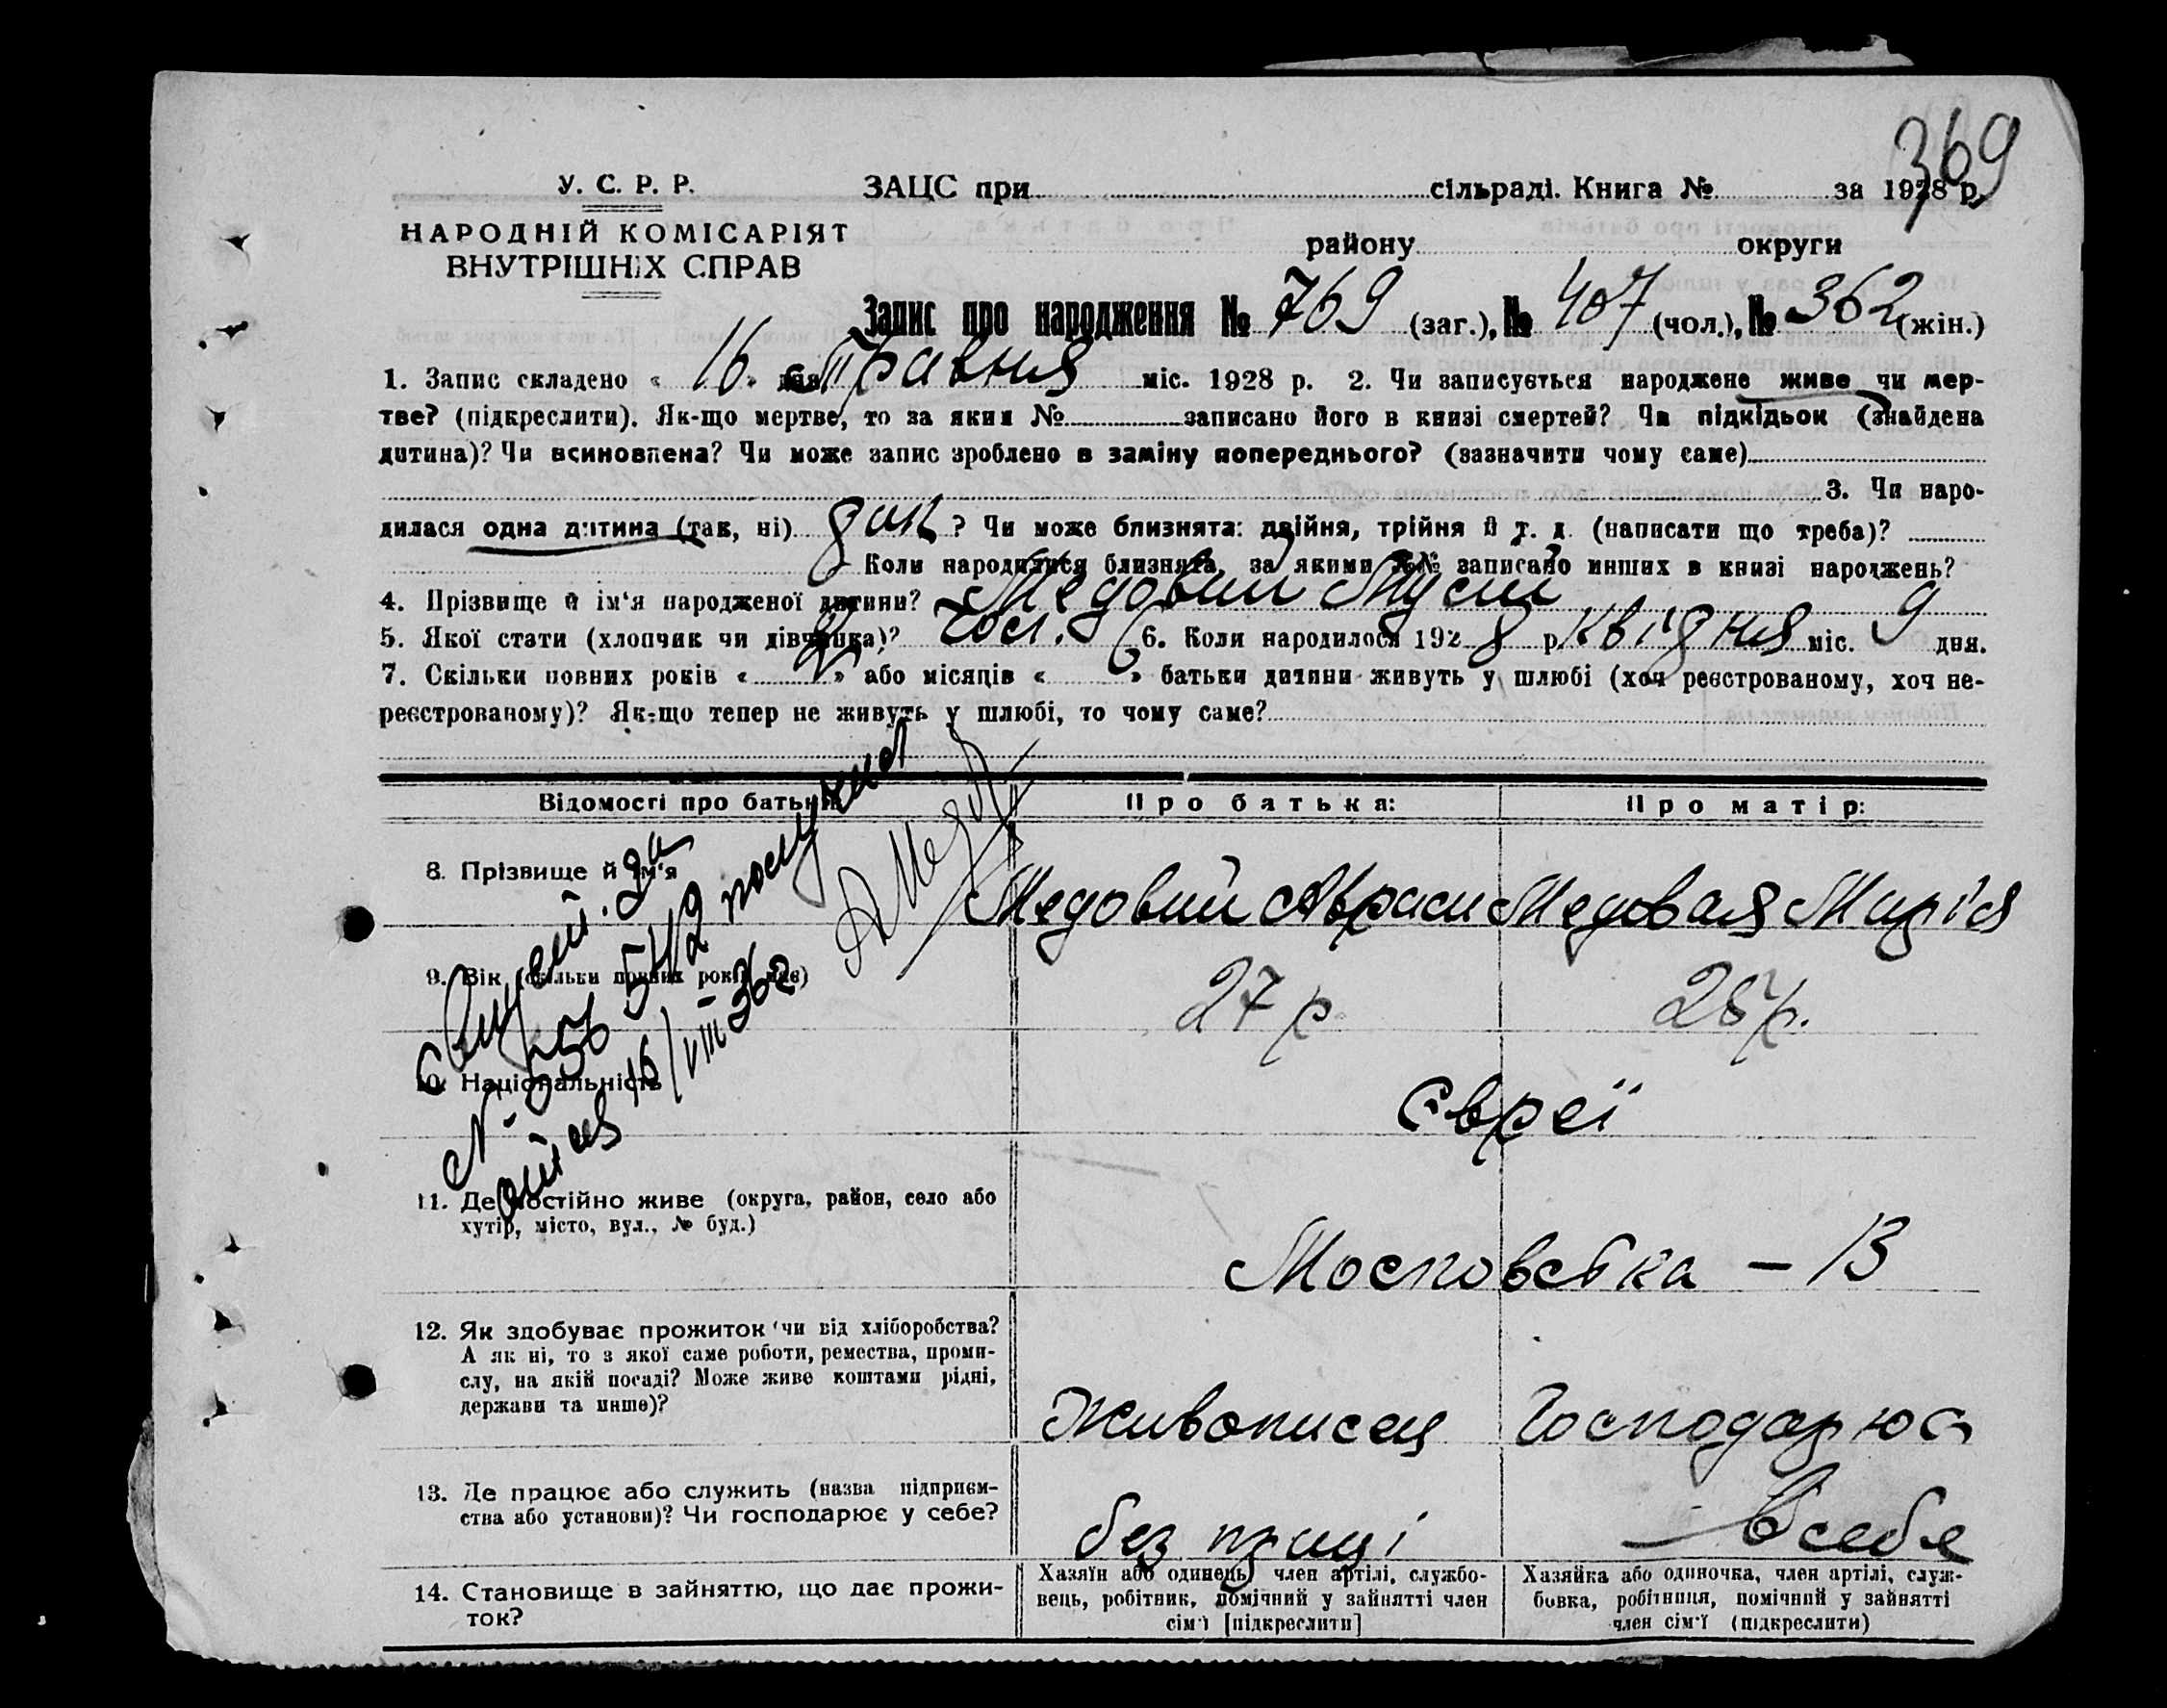 369
У. С. Р. Р.
НАРОДНІЙ КОМІСАРІЯТ
ВНУТРІШНІХ СПРАВ
ЗАЦС при сільраді. Книга № за 1928 р.
району округи
Запис про народження № 769 (заг.), № 407 (чол.), № 362 (жін.)
1. Запис складено « 16 » дня Травня міс. 1928 р. 2. Чи записується народжене живе чи мер-
тве? (підкреслити). Як-що мертве, то за яким № записано його в книзі смертей? Чи підкідьок (знайдена
дитина)? Чи всиновлена? Чи може запис зроблено в заміну попереднього? (зазначити чому саме)
3. Чи наро-
дилася одна дитина (так, ні) ? Чи може близнята: двійня, трійня й т. д. (написати що треба)?
Коли народилися близнята, за якими №№ записано инших в книзі народжень?
4. Прізвище й ім'я народженої дитини? Медовий Мусій
5. Якої стати (хлопчик чи дівчинка)? 6. Коли народилося 1928 р. Квідня міс. 9 дня.
7. Скільки повних років « » або місяців « » батьки дитини живуть у шлюбі (хоч реєстрованому, хоч не-
реєстрованому)? Як-що тепер не живуть у шлюбі, то чому саме?
Відомості про батьків Про батька: Про матір:
8. Прізвище й ім'я Медовий Абрам Медовая Марія
9. Вік (скільки повних років має) 27 р 28 р.
10. Національність Євреї
11. Де постійно живе (округа, район, село або
хутір, місто, вул., № буд.)
Московська – 13
12. Як здобуває прожиток чи від хліборобства?
А як ні, то з якої саме роботи, ремества, проми-
слу, на якій посаді? Може живе коштами рідні,
держави та инше)?
Живописец Господарює
13. Де працює або служить (назва підприєм-
ства або установи)? Чи господарює у себе?
без праці В себе
14. Становище в зайняттю, що дає прожи-
ток?
Хазяїн або одинець, член артілі, службо-
вець, робітник, помічний у зайнятті член
сім'ї [підкреслити]
Хазяйка або одиночка, член артілі, служ-
бовка, робітниця, помічний у зайнятті
член сім'ї (підкреслити)